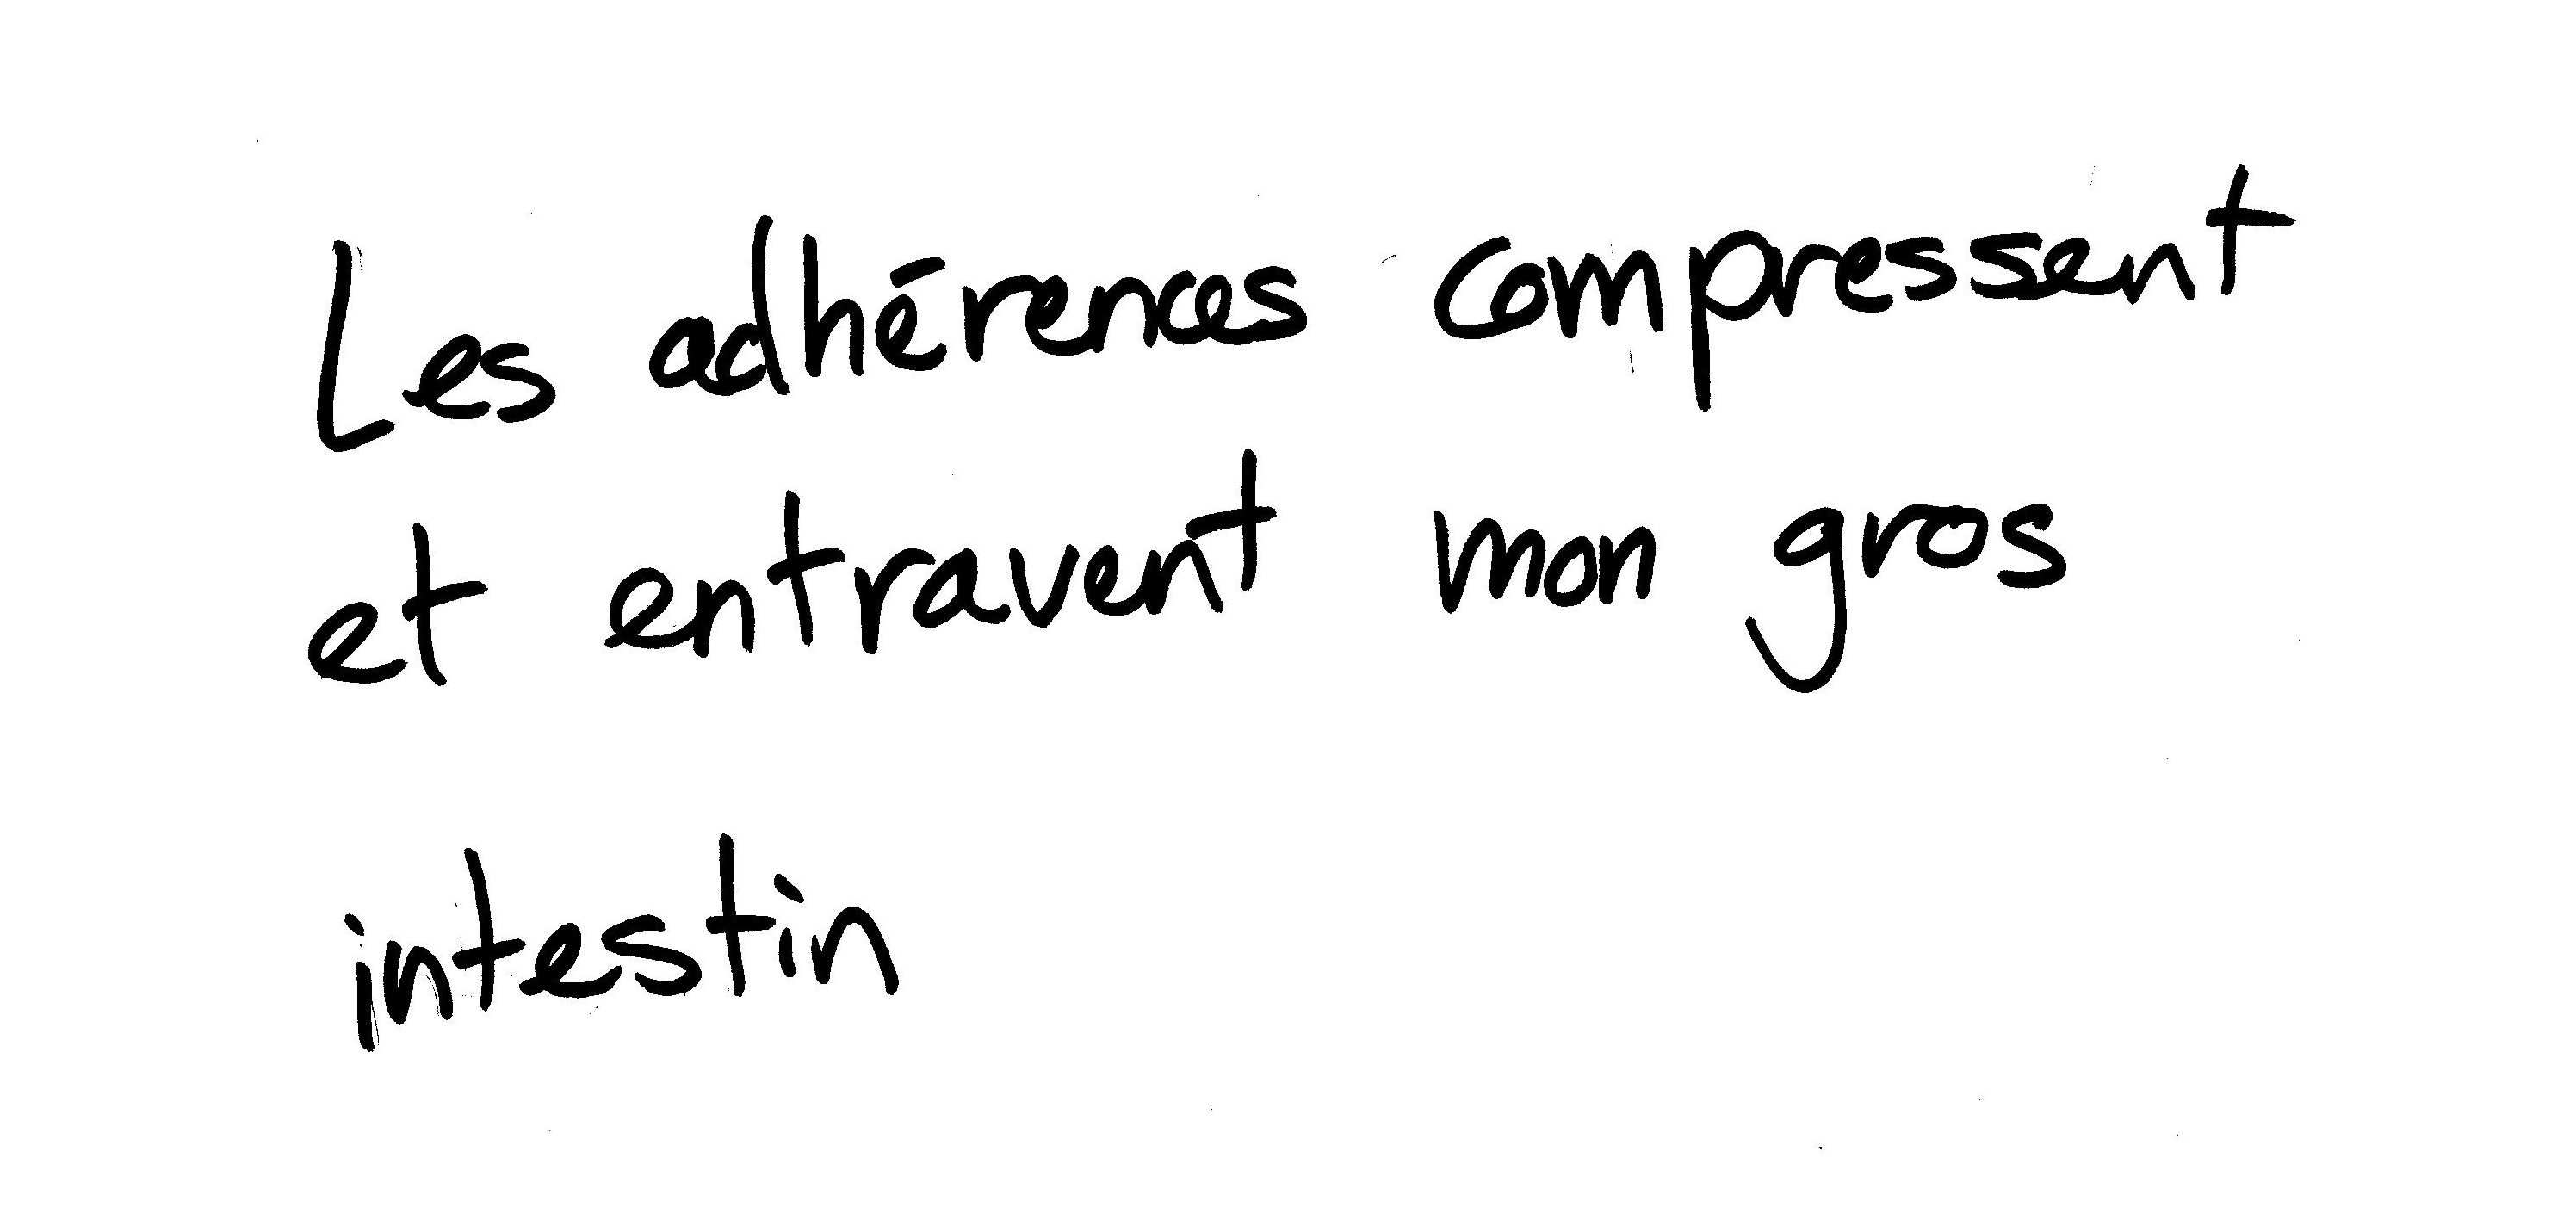 Les adhérences compressent
et entravent mon gros
intestin